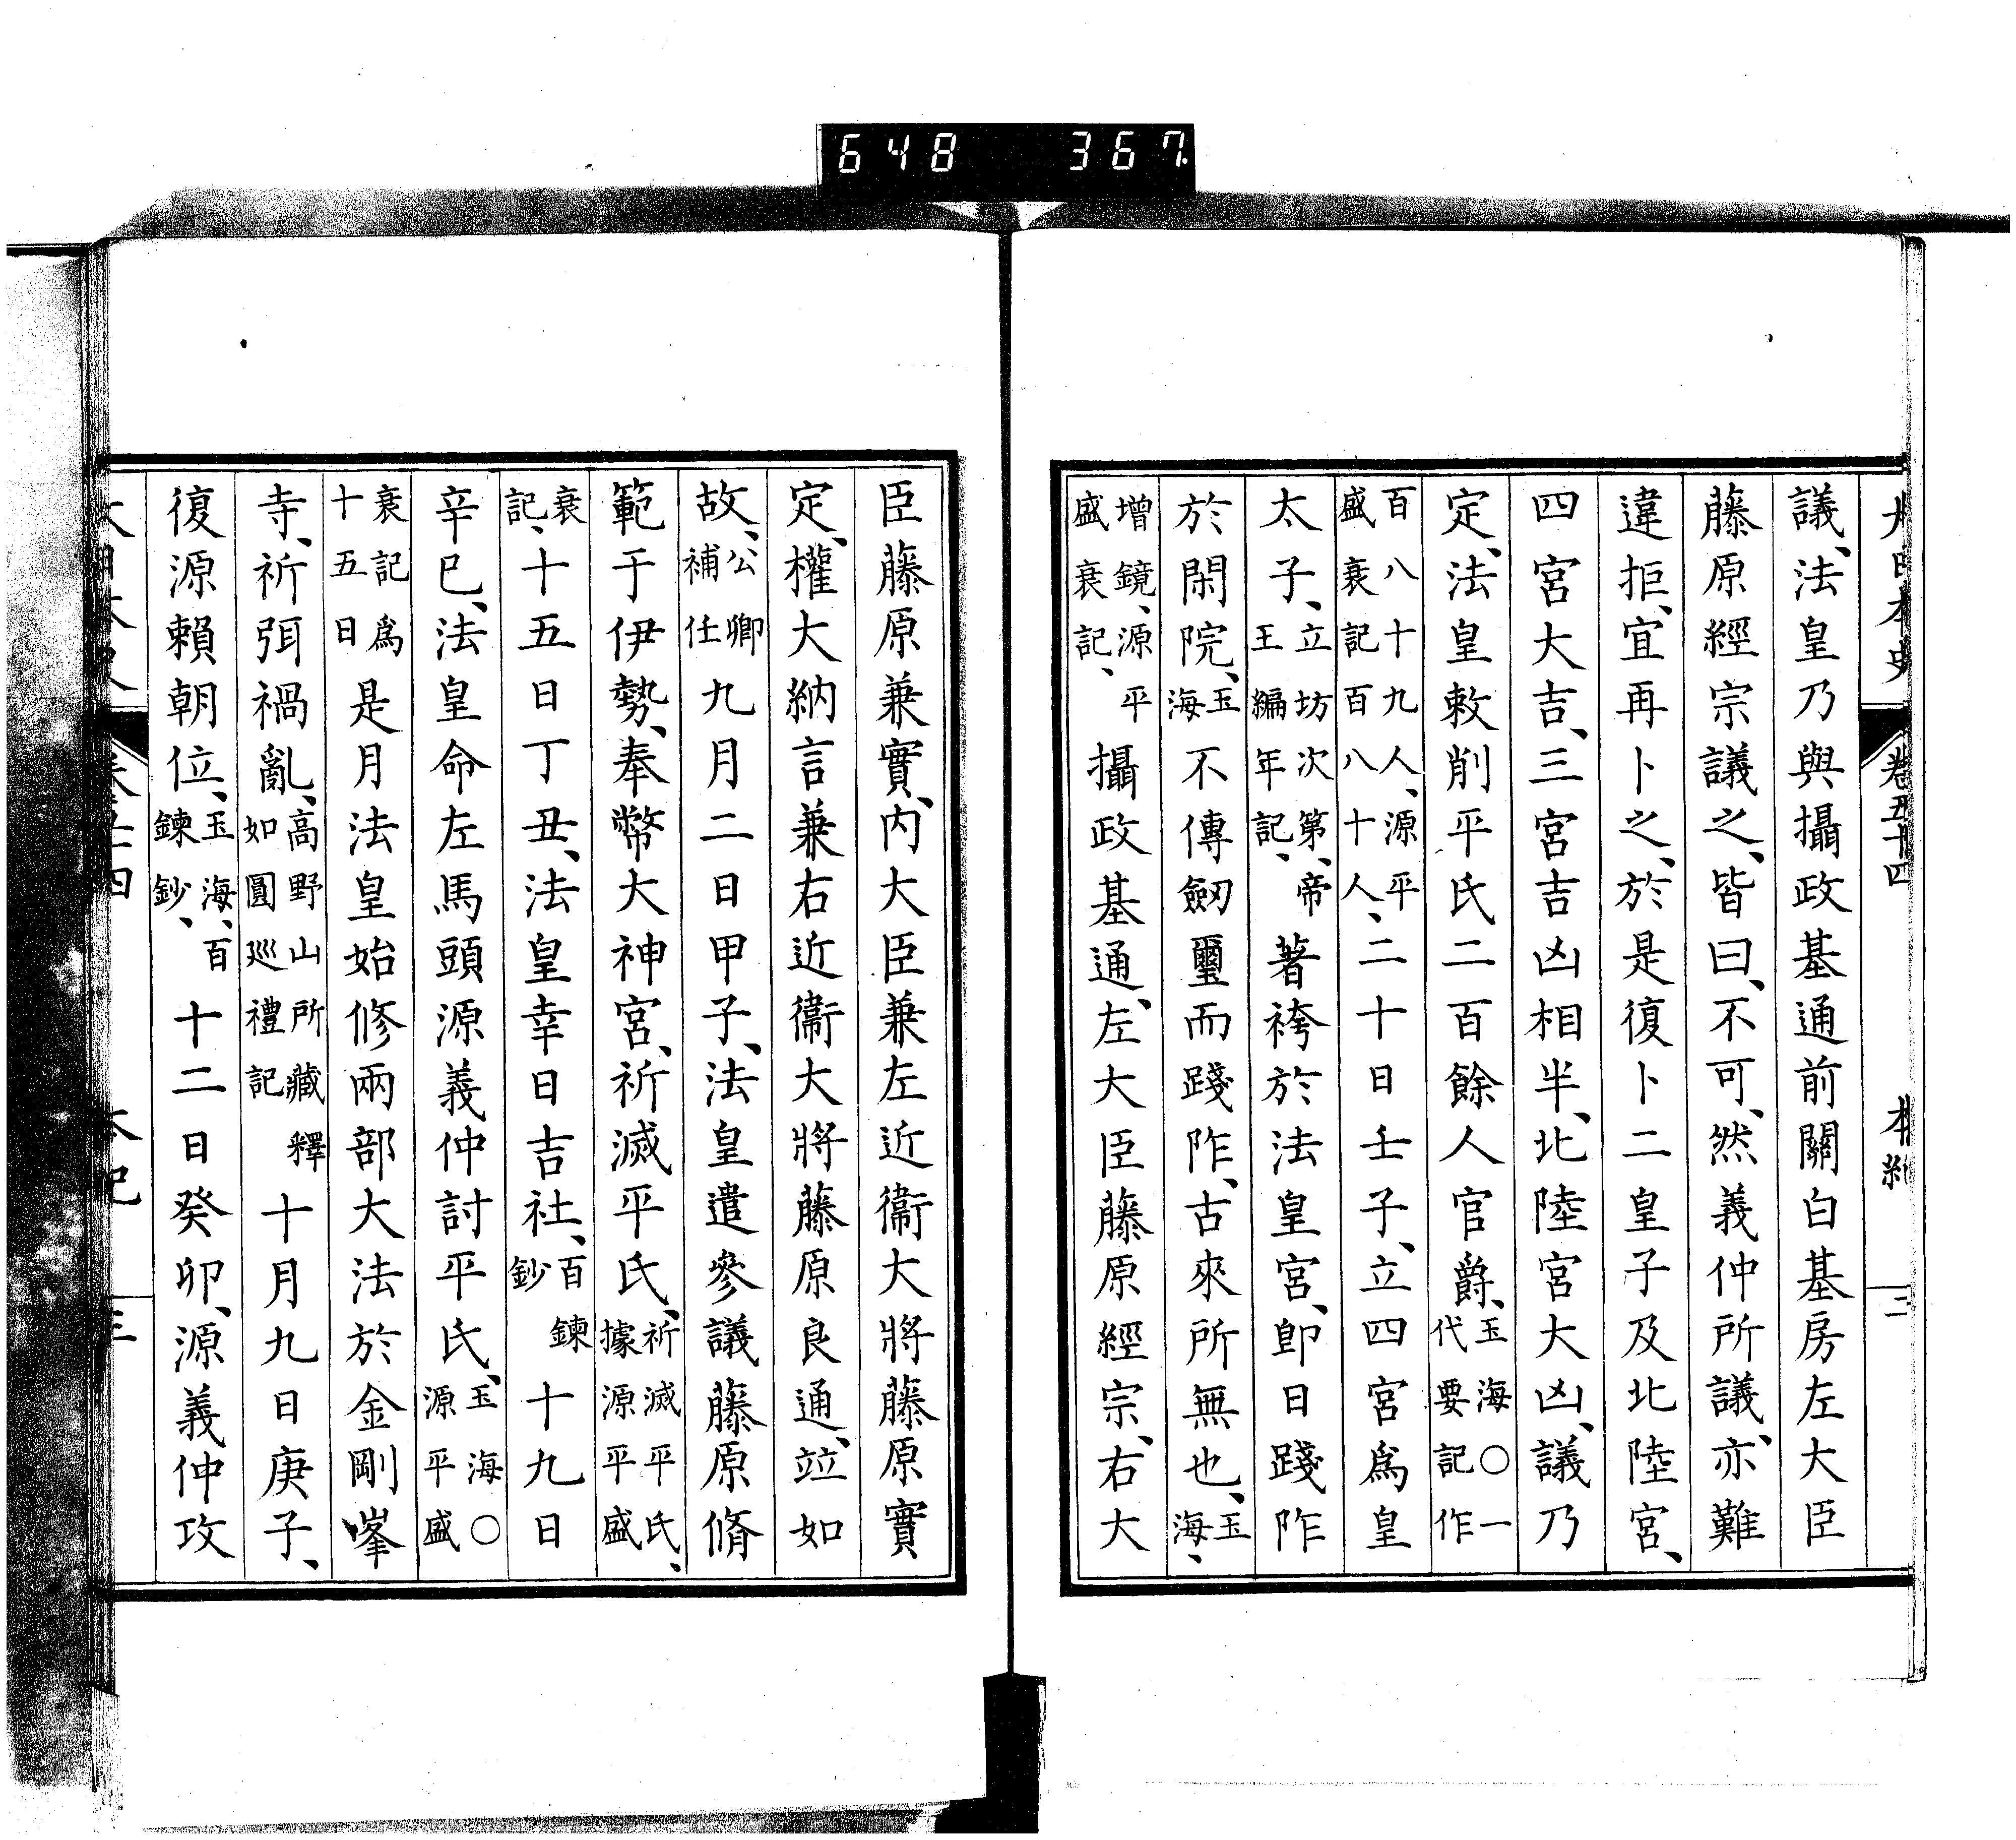 648 367
大日本史 卷五十四 本紀 二
議、法皇乃與攝政基通前關白基房左大臣
藤原經宗議之、皆曰、不可、然義仲所議、亦難
違拒、宜再卜之、於是復卜二皇子及北陸宮、
四宮大吉、三宮吉凶相半、北陸宮大凶、議乃
定、法皇敕削平氏二百餘人官爵、玉海○一代要記作
百八十九人、源平盛衰記百八十人、二十日壬子、立四宮爲皇
太子、立坊次第、帝王編年記、著袴於法皇宮、卽日踐阼
於閑院、玉海不傳劒璽而踐阼、古來所無也、玉海、
增鏡、源平盛衰記、攝政基通、左大臣藤原經宗、右大
臣藤原兼實、內大臣兼左近衞大將藤原實
定、權大納言兼右近衞大將藤原良通、竝如
故、公卿補任九月二日甲子、法皇遣參議藤原脩
範于伊勢、奉幣大神宮、祈滅平氏、祈滅平氏、據源平盛
衰記、十五日丁丑、法皇幸日吉社、百鍊鈔十九日
辛巳、法皇命左馬頭源義仲討平氏、玉海○源平盛
衰記爲十五日是月法皇始修兩部大法於金剛峯
寺、祈弭禍亂、高野山所藏釋如圓巡禮記十月九日庚子、
復源賴朝位、玉海、百鍊鈔、十二日癸卯、源義仲攻